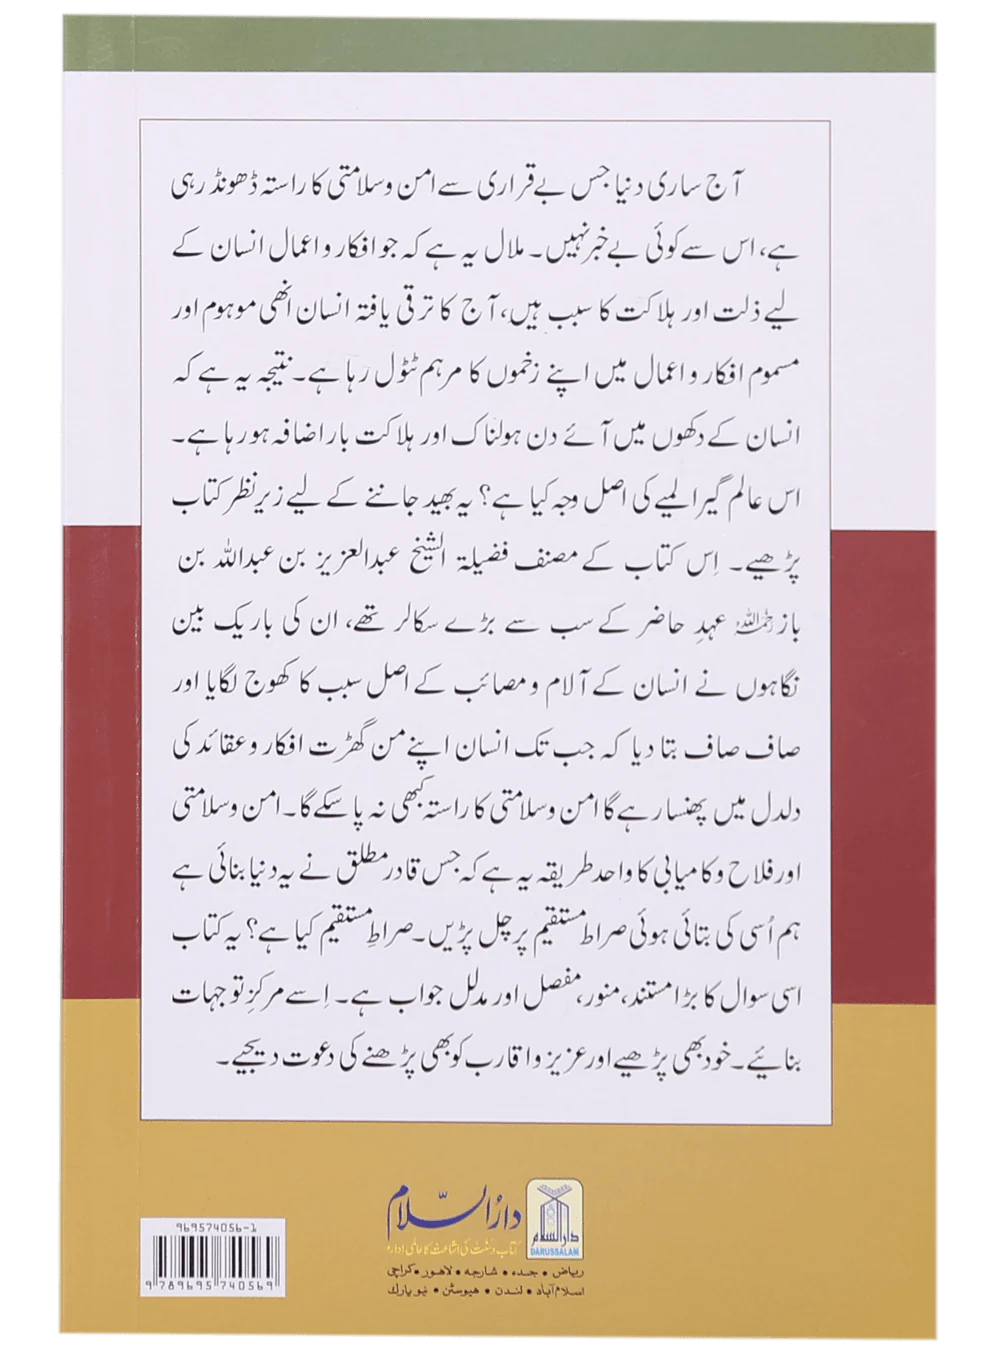 آج ساری دنیا جس بے قراری سے امن و سلامتی کا راستہ ڈھونڈ رہی
ہے، اس سے کوئی بے خبر نہیں۔ ملال یہ ہے کہ جو افکار و اعمال انسان کے
لیے ذلت اور ہلاکت کا سبب ہیں، آج کا ترقی یافتہ انسان انھی موہوم اور
مسموم افکار و اعمال میں اپنے زخموں کا مرہم ٹٹول رہا ہے۔ نتیجہ یہ ہے کہ
انسان کے دکھوں میں آئے دن ہولناک اور ہلاکت بار اضافہ ہو رہا ہے۔
اس عالم گیر المیے کی اصل وجہ کیا ہے؟ یہ بھید جاننے کے لیے زیرِ نظر کتاب
پڑھیے۔ اِس کتاب کے مصنف فضیلۃ الشیخ عبدالعزیز بن عبداللہ بن
باز رحمہ اللہ عہدِ حاضر کے سب سے بڑے سکالر تھے، ان کی باریک بین
نگاہوں نے انسان کے آلام و مصائب کے اصل سبب کا کھوج لگایا اور
صاف صاف بتا دیا کہ جب تک انسان اپنے من گھڑت افکار و عقائد کی
دلدل میں پھنسا رہے گا امن و سلامتی کا راستہ کبھی نہ پا سکے گا۔ امن و سلامتی
اور فلاح و کامیابی کا واحد طریقہ یہ ہے کہ جس قادرِ مطلق نے یہ دنیا بنائی ہے
ہم اُسی کی بتائی ہوئی صراطِ مستقیم پر چل پڑیں۔ صراطِ مستقیم کیا ہے؟ یہ کتاب
اسی سوال کا بڑا مستند، منور، مفصل اور مدلل جواب ہے۔ اِسے مرکزِ توجہات
بنائیے۔ خود بھی پڑھیے اور عزیز و اقارب کو بھی پڑھنے کی دعوت دیجیے۔
دارالسلام
کتاب و سنت کی اشاعت کا عالمی ادارہ
ریاض • جدہ • شارجہ • لاہور • کراچی
اسلام آباد • لندن • ہیوسٹن • نیو یارک
دارالسلام
DARUSSALAM
969574056-1
9 789695 740569